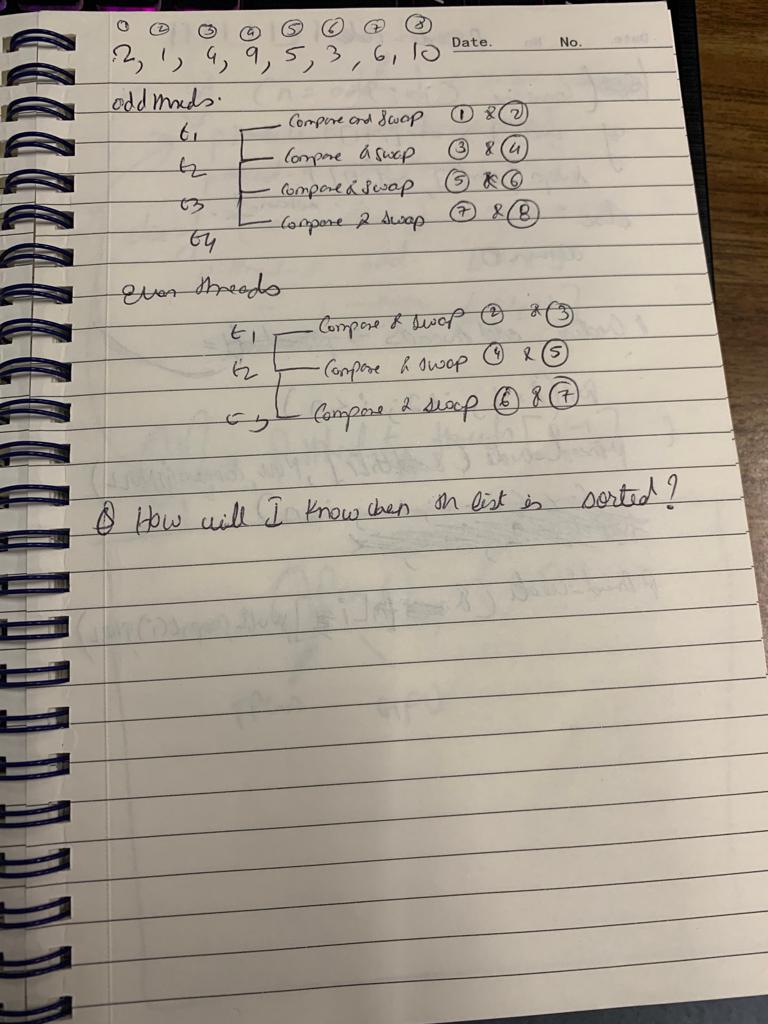 ① ② ③ ④ ⑤ ⑥ ⑦ ⑧
2, 1, 4, 9, 5, 3, 6, 10 Date. No.
odd
t1 Compare and swap ① & ②
t2 Compare & swap ③ & ④
t3 Compare & swap ⑤ & ⑥
t4 Compare & swap ⑦ & ⑧
even threads
t1 Compare & swap ② & ③
t2 Compare & swap ④ & ⑤
t3 Compare & swap ⑥ & ⑦
Q How will I know when the list is sorted?